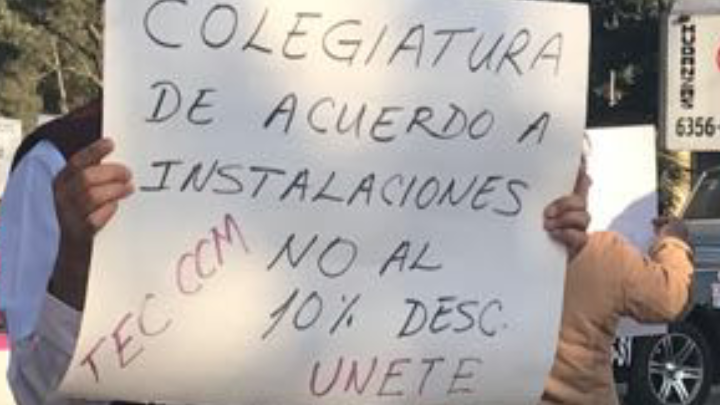 COLEGIATURA
DE ACUERDO A
INSTALACIONES
NO AL
10% DESC.
UNETE
TEC CCM
6356-